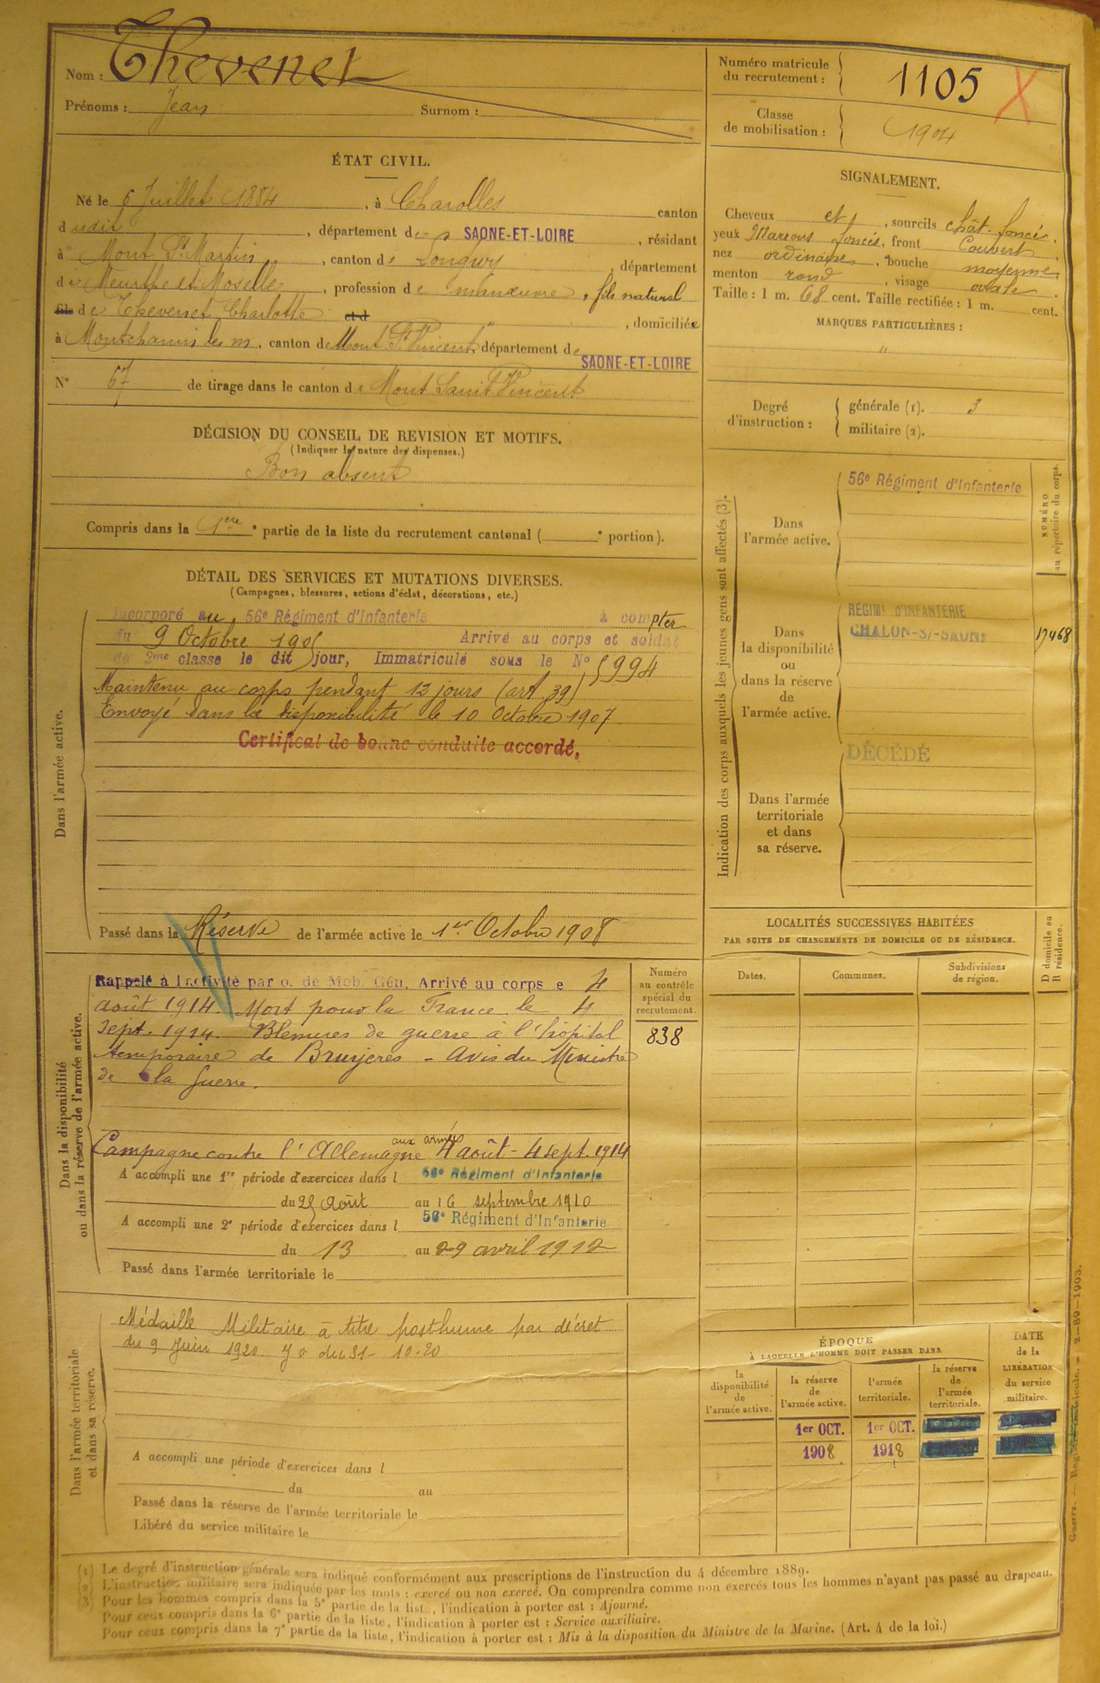 Nom : Thevenet
Prénoms : Jean Surnom :
Numéro matricule du recrutement : 1105
Classe de mobilisation : 1904
ÉTAT CIVIL.
Né le 6 Juillet 1884, à Charolles canton
dudit, département de SAONE-ET-LOIRE, résidant
à Mont St Martin, canton de Longwy département
de Meurthe et Moselle, profession de manœuvre, fils naturel
fils de Thevenet Charlotte et d , domiciliée
à Montchanin les m, canton de Mont St Vincent, département de SAONE-ET-LOIRE
N° 67 de tirage dans le canton de Mont Saint Vincent
DÉCISION DU CONSEIL DE REVISION ET MOTIFS.
(Indiquer la nature des dispenses.)
Bon absent
Compris dans la 1ere partie de la liste du recrutement cantonal ( e portion).
SIGNALEMENT.
Cheveux et, sourcils chât. foncé.
yeux Marrons foncés, front Couvert
nez ordinaire, bouche moyenne
menton rond, visage ovale.
Taille : 1 m. 68 cent. Taille rectifiée : 1 m. cent.
MARQUES PARTICULIÈRES :
"
Degré d'instruction : générale (1). 3
militaire (2).
DÉTAIL DES SERVICES ET MUTATIONS DIVERSES.
(Campagnes, blessures, actions d'éclat, décorations, etc.)
Dans l'armée active.
Incorporé au 56e Régiment d'Infanterie à compter
du 9 Octobre 1905 Arrivé au corps et soldat
de 2me classe le dit jour, Immatriculé sous le N° 5994
Maintenu au corps pendant 12 jours (art. 39)
Envoyé dans la disponibilité le 10 Octobre 1907
Certificat de bonne conduite accordé,
Passé dans la Réserve de l'armée active le 1er Octobre 1908
Indication des corps auxquels les jeunes gens sont affectés (3).
NUMÉRO au répertoire du corps.
Dans l'armée active.
56e Régiment d'Infanterie
Dans la disponibilité ou dans la réserve de l'armée active.
REGIMt D'INFANTERIE
CHALON-S/-SAONE
17468
Dans l'armée territoriale et dans sa réserve.
DÉCÉDÉ
Dans la disponibilité ou dans la réserve de l'armée active.
Rappelé à l'activité par o. de Mob. Gén. Arrivé au corps e 4
août 1914. Mort pour la France le 4
Sept. 1914. Blessures de guerre à l'hôpital
temporaire de Bruyères - avis du Ministre
de la guerre.
Campagne contre l'Allemagne aux armées 4 août - 4 sept. 1914
A accompli une 1re période d'exercices dans l 56e Régiment d'Infanterie
du 25 Août au 16 septembre 1910
A accompli une 2e période d'exercices dans l 56e Régiment d'Infanterie
du 13 au 29 avril 1912
Passé dans l'armée territoriale le
Numéro au contrôle spécial du recrutement.
838
LOCALITÉS SUCCESSIVES HABITÉES
PAR SUITE DE CHANGEMENTS DE DOMICILE OU DE RÉSIDENCE.
Dates. Communes. Subdivisions de région.
D domicile ou R résidence.
Dans l'armée territoriale et dans sa réserve.
Médaille Militaire à titre posthume par décret
du 9 Juin 1920 J O du 31-10-20
A accompli une période d'exercices dans l
du au
Passé dans la réserve de l'armée territoriale le
Libéré du service militaire le
ÉPOQUE
À LAQUELLE L'HOMME DOIT PASSER DANS
la disponibilité de l'armée active.
la réserve de l'armée active.
l'armée territoriale.
la réserve de l'armée territoriale.
DATE de la LIBÉRATION du service militaire.
1er OCT. 1er OCT.
1908 1918
(1) Le degré d'instruction générale sera indiqué conformément aux prescriptions de l'instruction du 4 décembre 1889.
(2) L'instruction militaire sera indiquée par les mots : exercé ou non exercé. On comprendra comme non exercés tous les hommes n'ayant pas passé au drapeau.
(3) Pour les hommes compris dans la 5e partie de la liste, l'indication à porter est : Ajourné.
Pour ceux compris dans la 6e partie de la liste, l'indication à porter est : Service auxiliaire.
Pour ceux compris dans la 7e partie de la liste, l'indication à porter est : Mis à la disposition du Ministre de la Marine. (Art. 4 de la loi.)